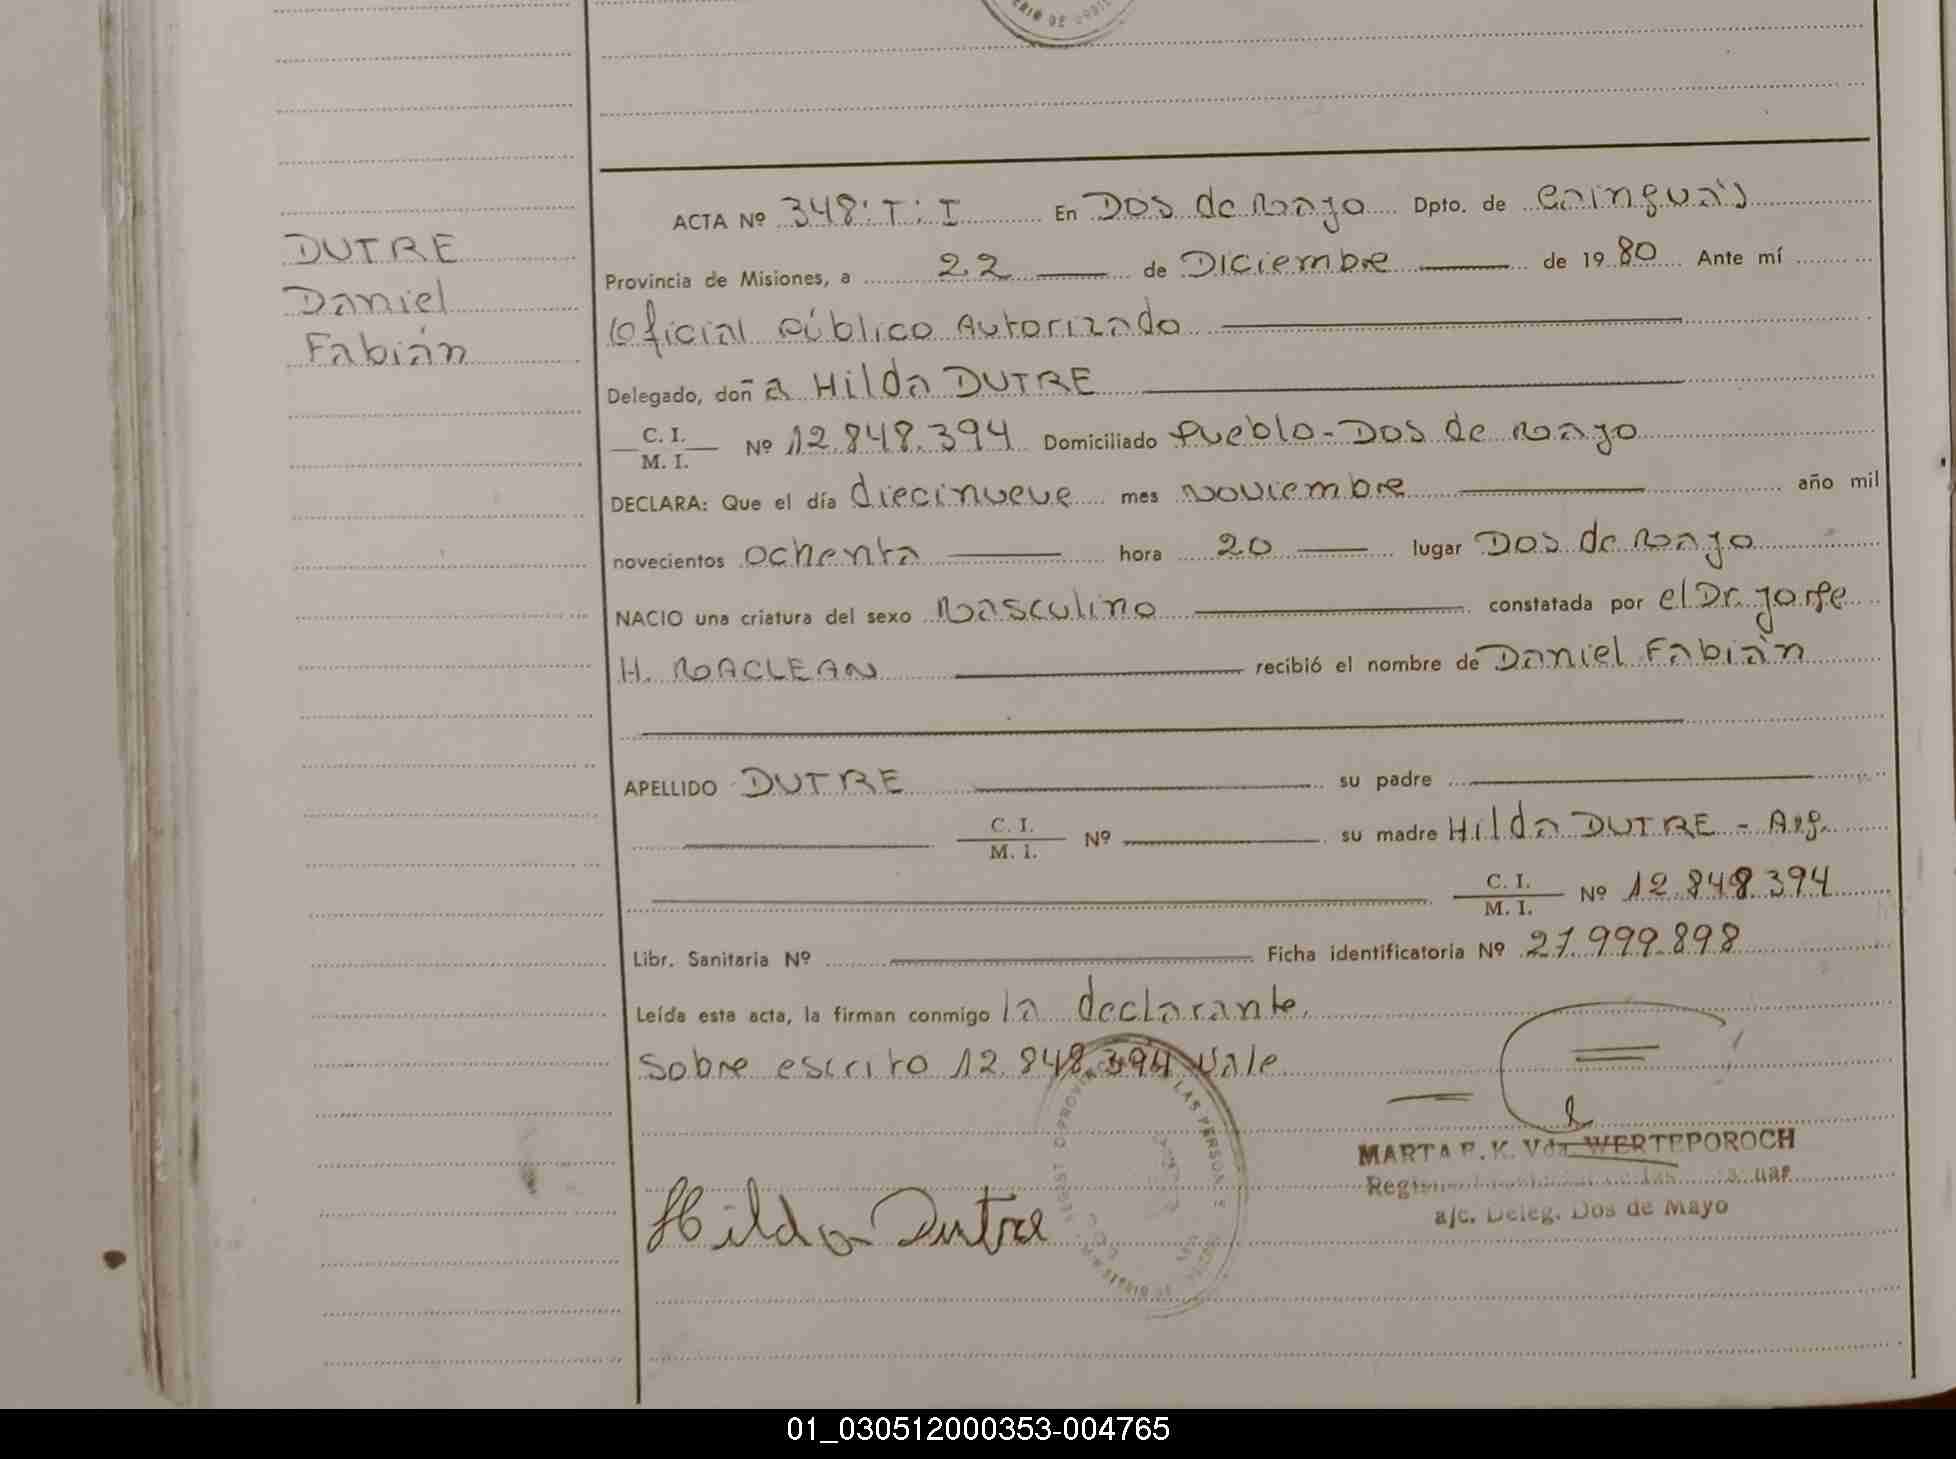 DUTRE
Daniel
Fabián
ACTA Nº 348: T: I En Dos de Mayo Dpto. de Cainguás
Provincia de Misiones, a 22 de Diciembre de 1980 Ante mí
Oficial Público Autorizado
Delegado, doña Hilda DUTRE
C. I.
M. I. Nº 12.848.394 Domiciliado Pueblo - Dos de Mayo
DECLARA: Que el día diecinueve mes Noviembre año mil
novecientos ochenta hora 20 lugar Dos de Mayo
NACIO una criatura del sexo Masculino constatada por el Dr. Jorge
H. MACLEAN recibió el nombre de Daniel Fabián
APELLIDO DUTRE su padre
C. I.
M. I. Nº su madre Hilda DUTRE - Arg.
C. I.
M. I. Nº 12.848.394
Libr. Sanitaria Nº Ficha identificatoria Nº 27.999.898
Leída esta acta, la firman conmigo la declarante.
Sobre escrito 12.848.394 Vale
Hilda Dutre
MARTA P. K. Vda. WERTEPOROCH
a/c. Deleg. Dos de Mayo
01_030512000353-004765